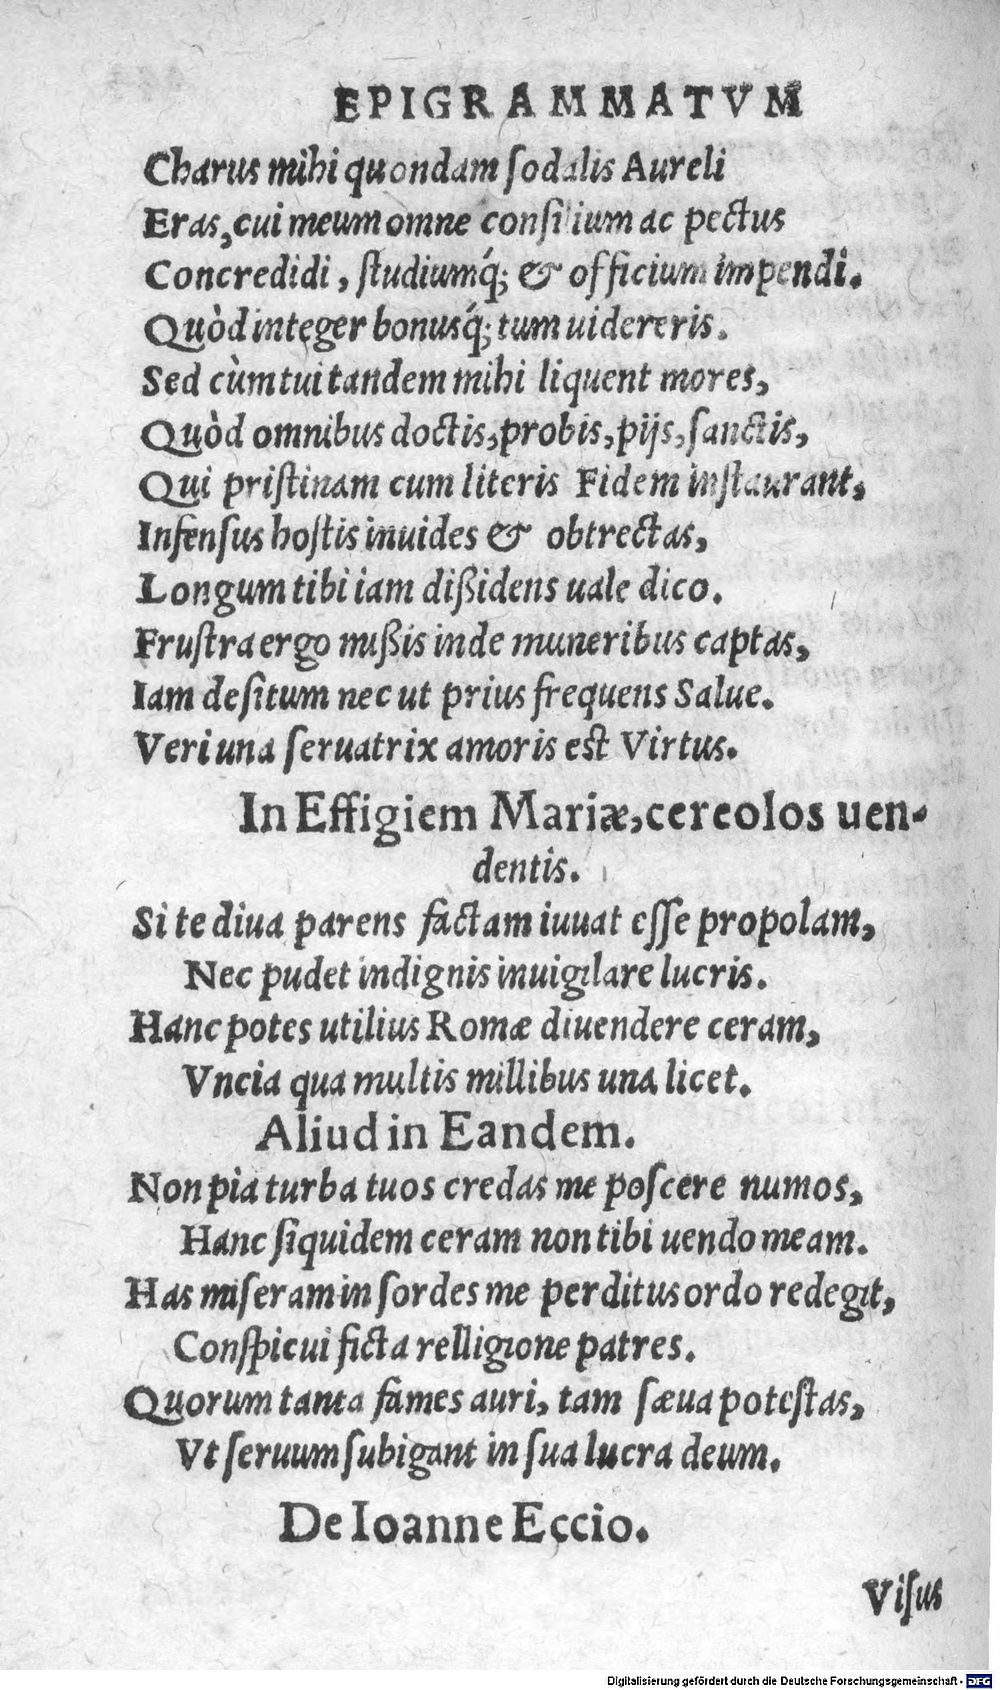 EPIGRAMMATVM
Charus mihi quondam ſodalis Aureli
Eras, cui meum omne conſilium ac pectus
Concredidi, ſtudiumq́; & officium impendi.
Quòd integer bonusq́; tum uidereris.
Sed cùm tui tandem mihi liquent mores,
Quòd omnibus doctis, probis, pijs, ſanctis,
Qui priſtinam cum literis Fidem inſtaurant,
Infenſus hoſtis inuides & obtrectas,
Longum tibi iam dißidens uale dico.
Fruſtra ergo mißis inde muneribus captas,
Iam deſitum nec ut prius frequens Salue.
Veri una ſeruatrix amoris est Virtus.
In Effigiem Mariæ, cereolos uen-
dentis.
Si te diua parens factam iuuat eſſe propolam,
Nec pudet indignis inuigilare lucris.
Hanc potes utilius Romæ diuendere ceram,
Vncia qua multis millibus una licet.
Aliud in Eandem.
Non pia turba tuos credas me poſcere numos,
Hanc ſiquidem ceram non tibi uendo meam.
Has miſeram in ſordes me perditus ordo redegit,
Conſpicui ficta relligione patres.
Quorum tanta fames auri, tam ſæua poteſtas,
Vt ſeruum ſubigant in ſua lucra deum.
De Ioanne Eccio.
Viſus
Digitalisierung gefördert durch die Deutsche Forschungsgemeinschaft - DFG